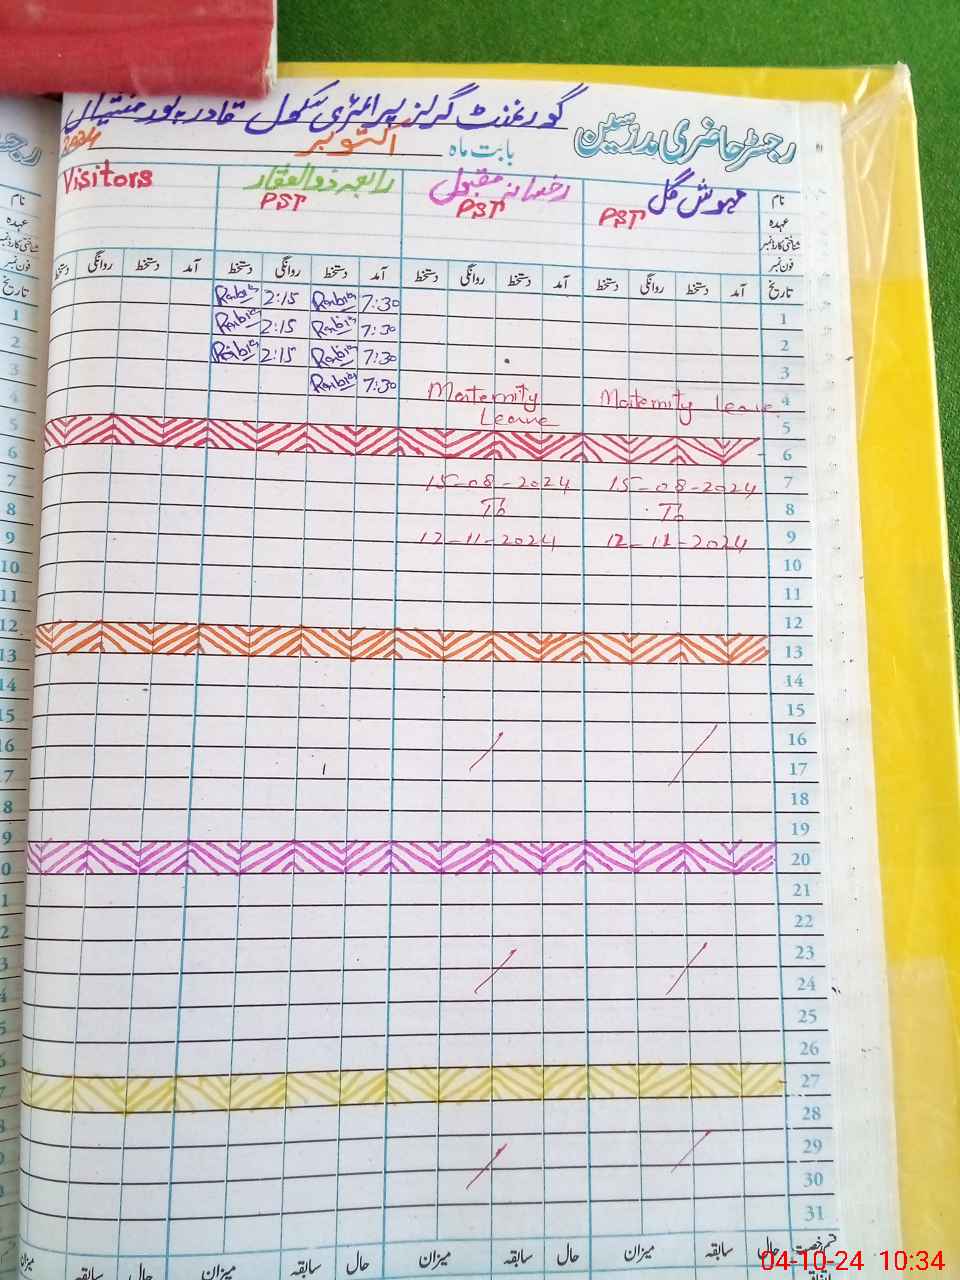 گورنمنٹ گرلز پرائمری سکول قادر پور
رجسٹر حاضری مدرسین
بابت ماہ اکتوبر 2024
نام مہوش گل رخسانہ مقبول رابعہ ذوالفقار Visitors
عہدہ PST PST PST
شناختی کارڈ نمبر
فون نمبر
تاریخ آمد دستخط روانگی دستخط آمد دستخط روانگی دستخط آمد دستخط روانگی دستخط آمد دستخط روانگی دستخط
1 7:30 Rabia 2:15 Rabia
2 7:30 Rabia 2:15 Rabia
3 7:30 Rabia 2:15 Rabia
4 Maternity Leave Maternity Leave 7:30 Rabia
5
6
7 15-08-2024 15-08-2024
8 To To
9 12-11-2024 12-11-2024
10
11
12
13
14
15
16
17
18
19
20
21
22
23
24
25
26
27
28
29
30
31
حال سابقہ میزان حال سابقہ میزان حال سابقہ میزان حال سابقہ میزان
04-10-24 10:34